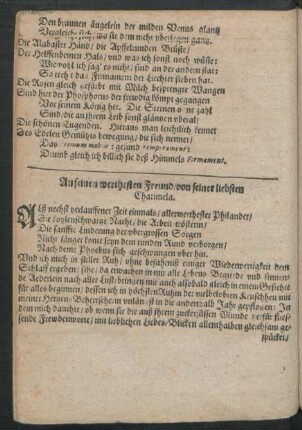 Den braunen äugelein der milden Venus glantz
Vergleiche sich, wo sie dem nicht überlegen gantz.
Die Alabaster Händ, die Apffelrunden Brüste/
Der Helffenbeinen Hals, und was ich sonst noch wüste:
Wiewohl ichs sag' so nicht/ sind an der andern statt
So recht das Firmament der Liechter sieben hat.
Die Rosen gleich gefärbt mit Milch besprengte Wangen
Sind hier der Phosphorus der frewdig kömpt gegangen
Vor seinem König her. Die Sternen one zahl
Sind, die an jhrem Leib sonst gläntzen überal!
Die schönen Tugenden. Hieraus man leichtlich kennet
Des Edelen Gemühts bewegung/ die sich nennet/
Das gesunde
Drumb gleich ich billich sie deß Himmels Firmament.
An seinen werthesten Freund/ von seiner liebsten
Chatimela.
Als nechst verlauffener Zeit einmals/ allerwerthester Phillander/
Die kohlenschwartze Nacht/ die Arbeit trösterin/
Die sanffte Linderung der übergrossen Sorgen
Nicht länger konte seyn dem runden Rund verborgen/
Nach dem Phoebus sich geschwungen über hin.
Und ich mich in stiller Ruh/ ohne befahrniß einiger Wiederwertigkeit dem
Schlaff ergeben/ sihe/ da erwachen in mir alle Lebens Begierde und
für alles beginnen/ dessen ich in höchsten Ruhm der vielbelobten Keuschheit mit
meiner Hertzen Beherrscherin unlängst in die andere halb Jahr gepflogen: In
dem mich dauchte/ ob wenn sie die auß ihrem zuckersüssen Munde
sende Frewdenworte/ mit lieblichen Liebes-Blicken allenthalben gleichsam ge-
spücket/